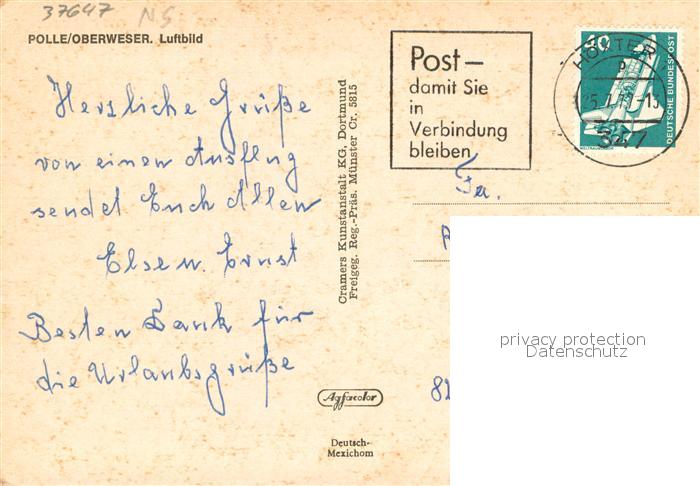 37647 NS
POLLE/OBERWESER. Luftbild
Herzliche Grüße
von einem Ausflug
sendet Euch Allen
Else u. Ernst
Besten Dank für
die Urlaubsgrüße
Cramers Kunstanstalt KG, Dortmund
Freigeg. Reg.-Präs. Münster Cr. 5815
Post—
damit Sie
in
Verbindung
bleiben
HÖXTER
40
DEUTSCHE BUNDESPOST
Fa.
privacy protection
Datenschutz
Agfacolor
Deutsch-
Mexichom